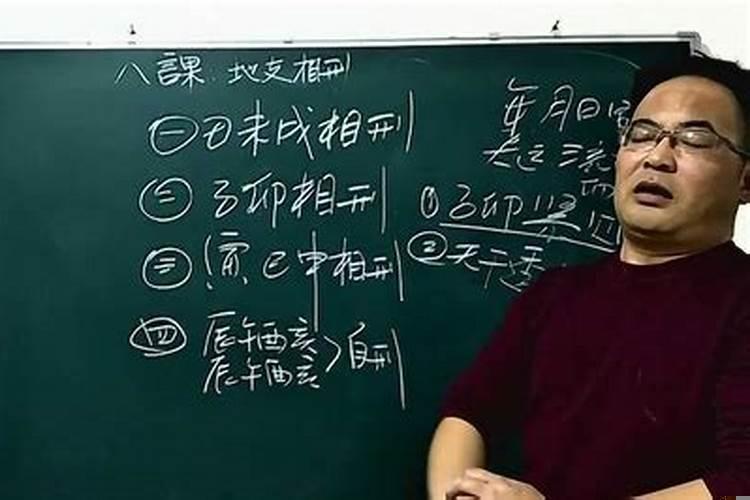 八課:地支相刑
㊀丑未戌相刑
㊁子卯相刑
㊂寅巳申相刑
㊃辰午酉亥
辰午酉亥>自刑
年月日
大运 流
①子卯
②天干透